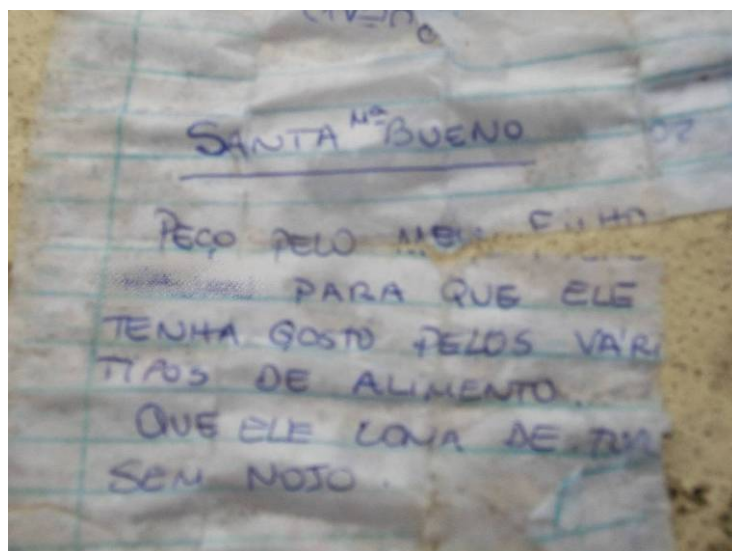 SANTA Mª BUENO
PEÇO PELO MEU FILHO
PARA QUE ELE
TENHA GOSTO PELOS VÁRI
TIPOS DE ALIMENTO.
QUE ELE COMA DE
SEM NOJO.